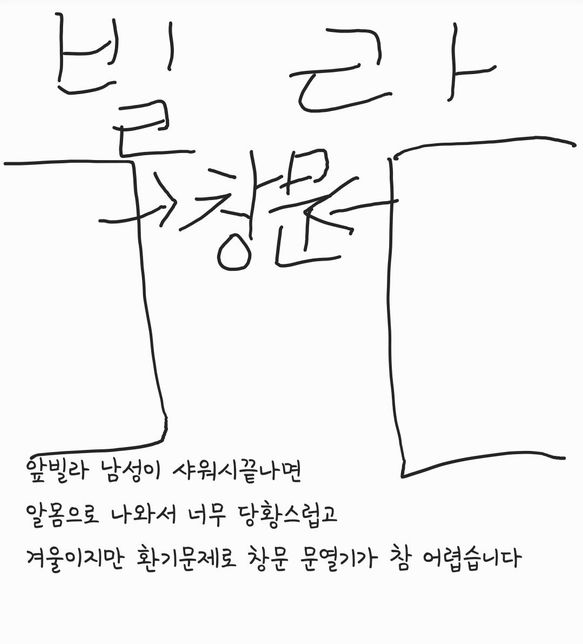 빌라
창문
앞빌라 남성이 샤워시끝나면
알몸으로 나와서 너무 당황스럽고
겨울이지만 환기문제로 창문 문열기가 참 어렵습니다